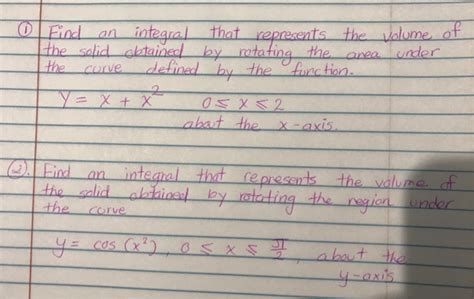 ① Find an integral that represents the volume of
the solid obtained by rotating the area under
the curve defined by the function.
y = x + x² 0 ≤ x ≤ 2
about the x-axis.
②. Find an integral that represents the volume of
the solid obtained by rotating the region under
the curve
y = cos (x²), 0 ≤ x ≤ π/2, about the
y-axis